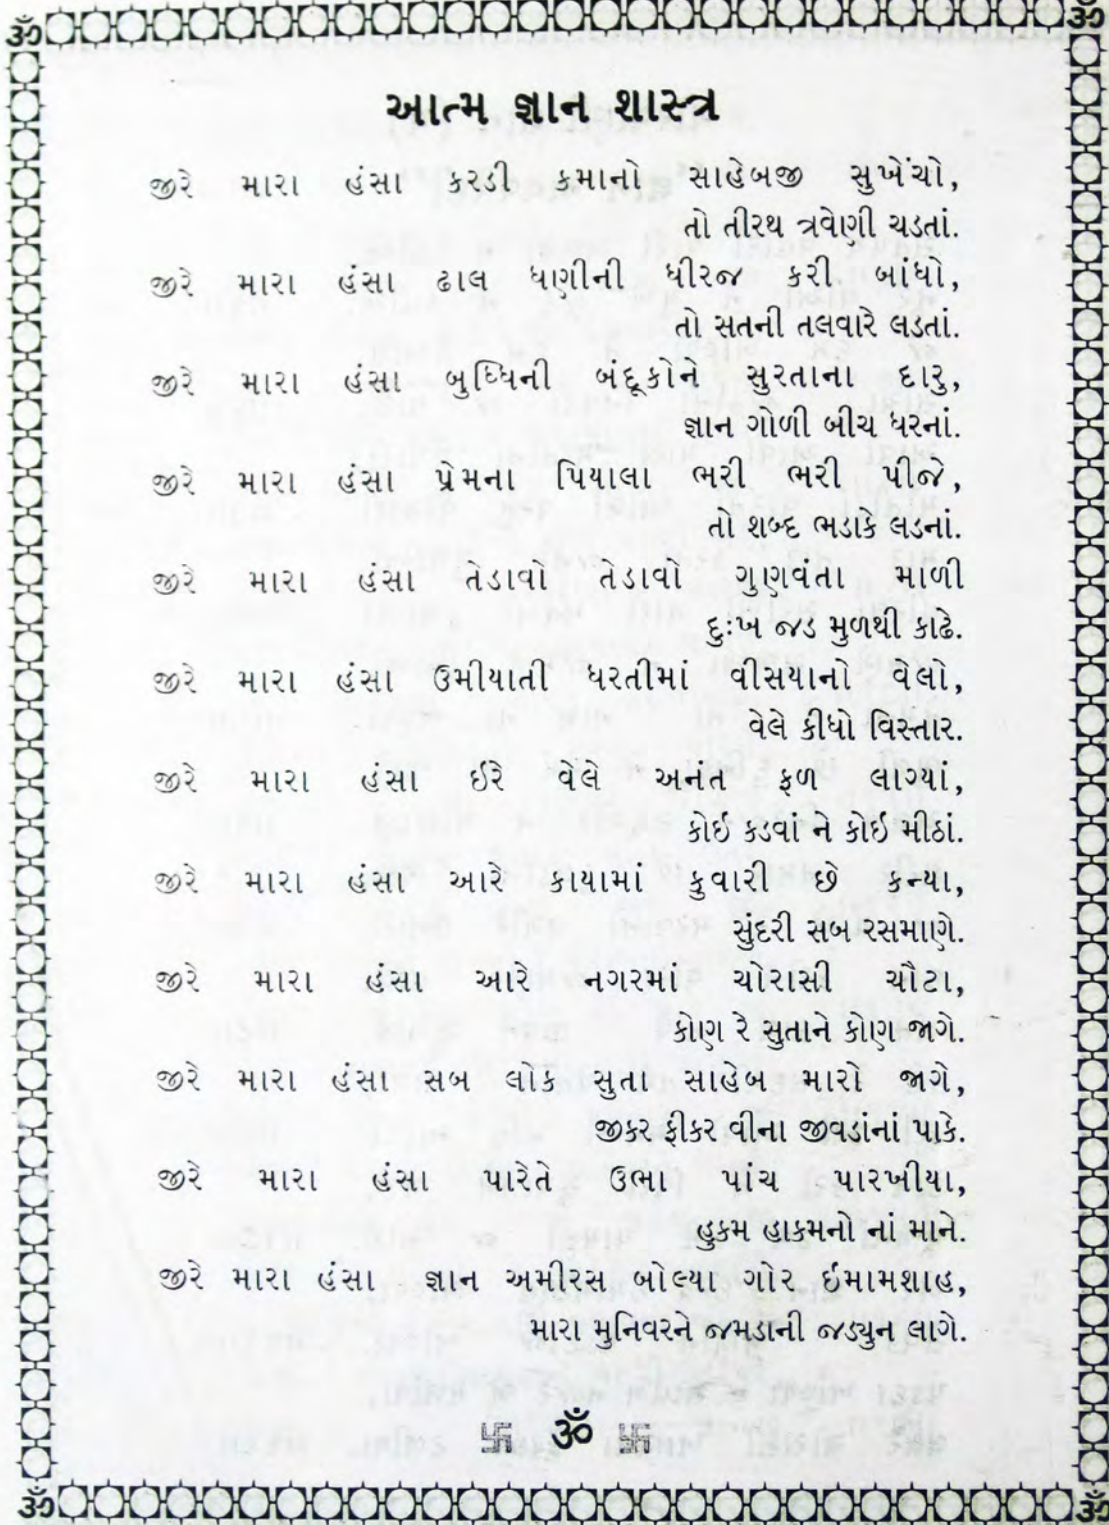 આત્મ જ્ઞાન શાસ્ત્ર
જીરે મારા હંસા કરડી કમાનો સાહેબજી સુખેંચો,
તો તીરથ ત્રવેણી ચડતાં.
જીરે મારા હંસા ઢાલ ધણીની ધીરજ કરી બાંધો,
તો સતની તલવારે લડતાં.
જીરે મારા હંસા બુધ્ધિની બંદૂકોને સુરતાના દારુ,
જ્ઞાન ગોળી બીચ ધરનાં.
જીરે મારા હંસા પ્રેમના પિયાલા ભરી ભરી પીજે,
તો શબ્દ ભડાકે લડનાં.
જીરે મારા હંસા તેડાવો તેડાવો ગુણવંતા માળી
દુઃખ જડ મુળથી કાઢે.
જીરે મારા હંસા ઉમીયાતી ધરતીમાં વીસયાનો વેલો,
વેલે કીધો વિસ્તાર.
જીરે મારા હંસા ઈરે વેલે અનંત ફળ લાગ્યાં,
કોઇ કડવાં ને કોઇ મીઠાં.
જીરે મારા હંસા આરે કાયામાં કુવારી છે કન્યા,
સુંદરી સબ રસમાણે.
જીરે મારા હંસા આરે નગરમાં ચોરાસી ચૌટા,
કોણ રે સુતાને કોણ જાગે.
જીરે મારા હંસા સબ લોક સુતા સાહેબ મારો જાગે,
જીકર ફીકર વીના જીવડાંનાં પાકે.
જીરે મારા હંસા પારેતે ઉભા પાંચ પારખીયા,
હુકમ હાકમનો નાં માને.
જીરે મારા હંસા જ્ઞાન અમીરસ બોલ્યા ગોર ઇમામશાહ,
મારા મુનિવરને જમડાની જડ્યુન લાગે.
卐 ॐ 卐